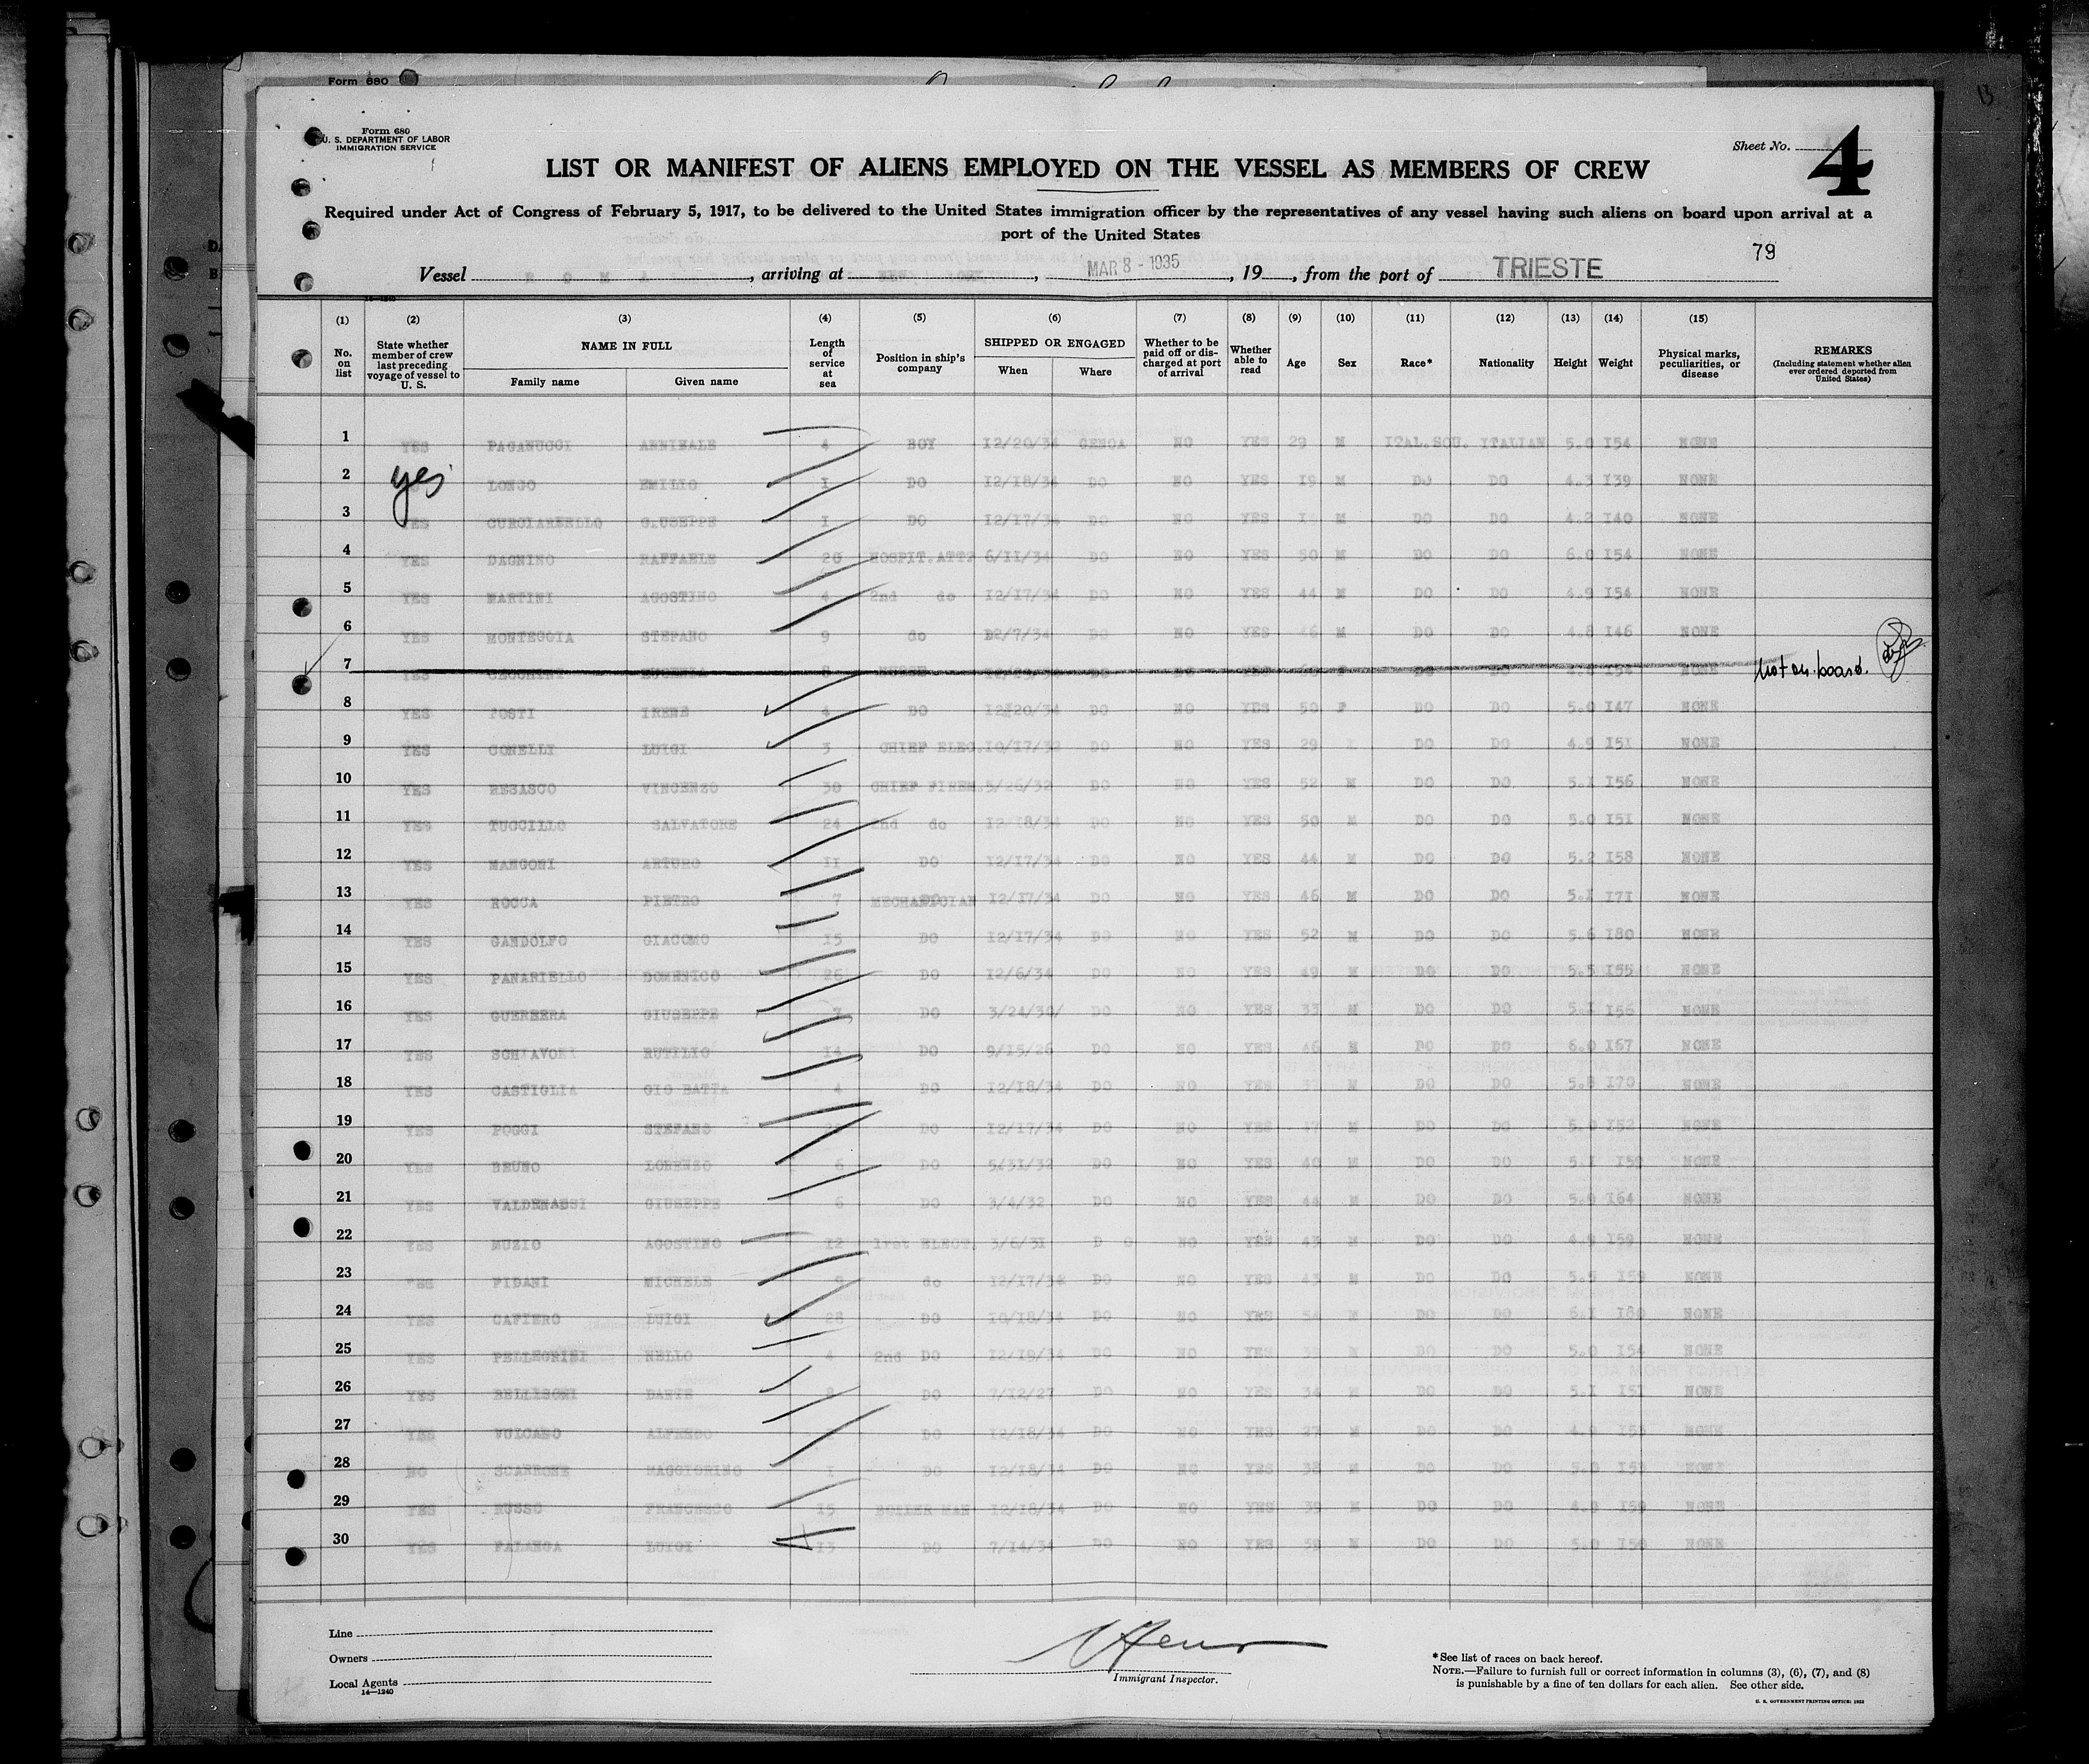 Form 680
Form 680
U. S. DEPARTMENT OF LABOR
IMMIGRATION SERVICE
Sheet No. 4
LIST OR MANIFEST OF ALIENS EMPLOYED ON THE VESSEL AS MEMBERS OF CREW
Required under Act of Congress of February 5, 1917, to be delivered to the United States immigration officer by the representatives of any vessel having such aliens on board upon arrival at a
port of the United States
79
Vessel R O M A, arriving at NEW YORK, MAR 8 - 1935, 19, from the port of TRIESTE
14-1240
(1) (2) (3) (4) (5) (6) (7) (8) (9) (10) (11) (12) (13) (14) (15)
No. on list
State whether member of crew last preceding voyage of vessel to U. S.
NAME IN FULL
Family name Given name
Length of service at sea
Position in ship's company
SHIPPED OR ENGAGED
When Where
Whether to be paid off or discharged at port of arrival
Whether able to read
Age Sex Race* Nationality Height Weight
Physical marks, peculiarities, or disease
REMARKS
(Including statement whether alien ever ordered deported from United States)
1 YES PAGANUCCI ANNIBALE 4 BOY 12/20/34 GENOA NO YES 29 M ITAL.SOU. ITALIAN 5.0 154 NONE
2 yes LONGO EMILIO 1 DO 12/18/34 DO NO YES 19 M DO DO 4.3 139 NONE
3 YES GIUSEPPE 1 DO 12/17/34 DO NO YES M DO DO 4.2 140 NONE
4 YES DAGNINO RAFFAELE 20 HOSPIT.ATT? 6/11/34 DO NO YES 50 M DO DO 6.0 154 NONE
5 YES MARTINI AGOSTINO 4 2nd do 12/17/34 DO NO YES 44 M DO DO 4.9 154 NONE
6 YES MONTEGGIA STEFANO 9 do 12/7/34 DO NO YES 46 M DO DO 4.8 146 NONE
7 YES CECCHINI EUGENIA 8 NURSE DO NO YES DO DO NONE not on board.
8 YES POSTI IRENE 4 DO 12/20/34 DO NO YES 50 F DO DO 5.0 147 NONE
9 YES CONELLI LUIGI 3 CHIEF ELEC. 10/17/32 DO NO YES 29 DO DO 4.9 151 NONE
10 YES RESASCO VINCENZO 30 CHIEF FIREM. 5/26/32 DO NO YES 52 M DO DO 5.1 156 NONE
11 YES TUCCILLO SALVATORE 24 2nd do 12/18/34 DO NO YES 50 M DO DO 5.0 151 NONE
12 YES MANGONI ARTURO 11 DO 12/17/34 DO NO YES 44 M DO DO 5.2 158 NONE
13 YES ROCCA PIETRO 7 MECHANICIAN 12/17/34 DO NO YES 46 M DO DO 5.1 171 NONE
14 YES GANDOLFO GIACOMO 15 DO 12/17/34 DO NO YES 52 M DO DO 5.6 180 NONE
15 YES PANARIELLO DOMENICO 26 DO 12/6/34 DO NO YES 49 M DO DO 5.5 155 NONE
16 YES GUERRERA GIUSEPPE 7 DO 3/24/30/ DO NO YES 33 M DO DO 5.1 156 NONE
17 YES SCHIAVONI RUTILIO 14 DO 9/15/26 DO NO YES 46 M DO DO 6.0 167 NONE
18 YES CASTIGLIA GIO BATTA 4 DO 12/18/34 DO NO YES 37 M DO DO 5.8 170 NONE
19 YES POGGI STEFANO DO 12/17/34 DO NO YES 47 M DO DO 5.0 152 NONE
20 YES BRUNO LORENZO 6 DO 5/31/32 DO NO YES 40 M DO DO 5.1 159 NONE
21 YES GIUSEPPE 6 DO 3/4/32 DO NO YES 44 M DO DO 5.0 164 NONE
22 YES MUZIO AGOSTINO 12 1rst ELECT. 3/6/31 D O NO YES 43 M DO DO 4.9 159 NONE
23 YES FIDANI MICHELE 9 do 12/17/34 DO NO YES 43 M DO DO 5.5 159 NONE
24 YES CAFIERO LUIGI 28 DO 10/18/34 DO NO YES 54 M DO DO 6.1 180 NONE
25 YES PELLEGRINI NELLO 4 2nd DO 12/19/34 DO NO YES M DO DO 5.0 154 NONE
26 YES BELLISOMI DANTE 8 DO 7/12/27 DO NO YES 34 M DO DO 5.1 157 NONE
27 YES VULCANO ALFREDO DO 12/18/34 DO NO YES 27 M DO DO NONE
28 NO SCARRONE MAGGIORINO 1 DO 12/18/34 DO NO YES 38 M DO DO 5.0 NONE
29 YES RUSSO FRANCESCO 15 BOILER MAN 12/18/34 DO NO YES 39 M DO DO 4.9 159 NONE
30 YES FALANGA LUIGI 13 DO 7/14/34 DO NO YES 59 M DO DO 5.0 NONE
Line
Owners
Local Agents
14-1240
Immigrant Inspector.
*See list of races on back hereof.
NOTE.—Failure to furnish full or correct information in columns (3), (6), (7), and (8)
is punishable by a fine of ten dollars for each alien. See other side.
U. S. GOVERNMENT PRINTING OFFICE: 1932